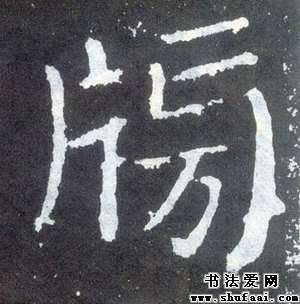 牓
书法爱网
www.shufaai.com